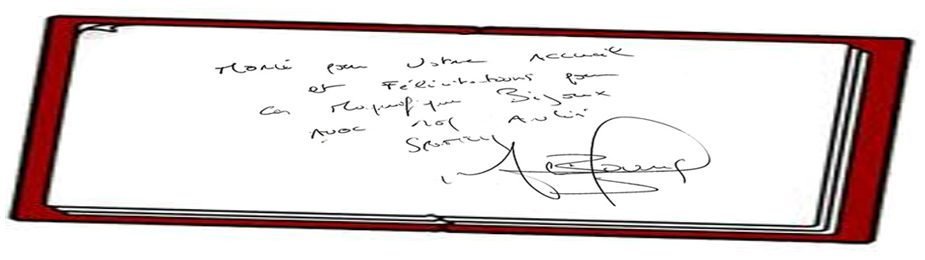 Merci pour Votre Accueil
et Félicitations pour
ce Magnifique Bijoux
Avec Amitié
Sportive